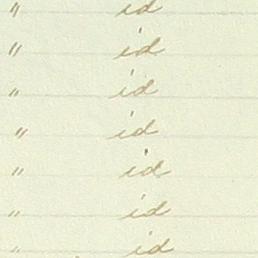 " id
" id
" id
" id
" id
" id
" id